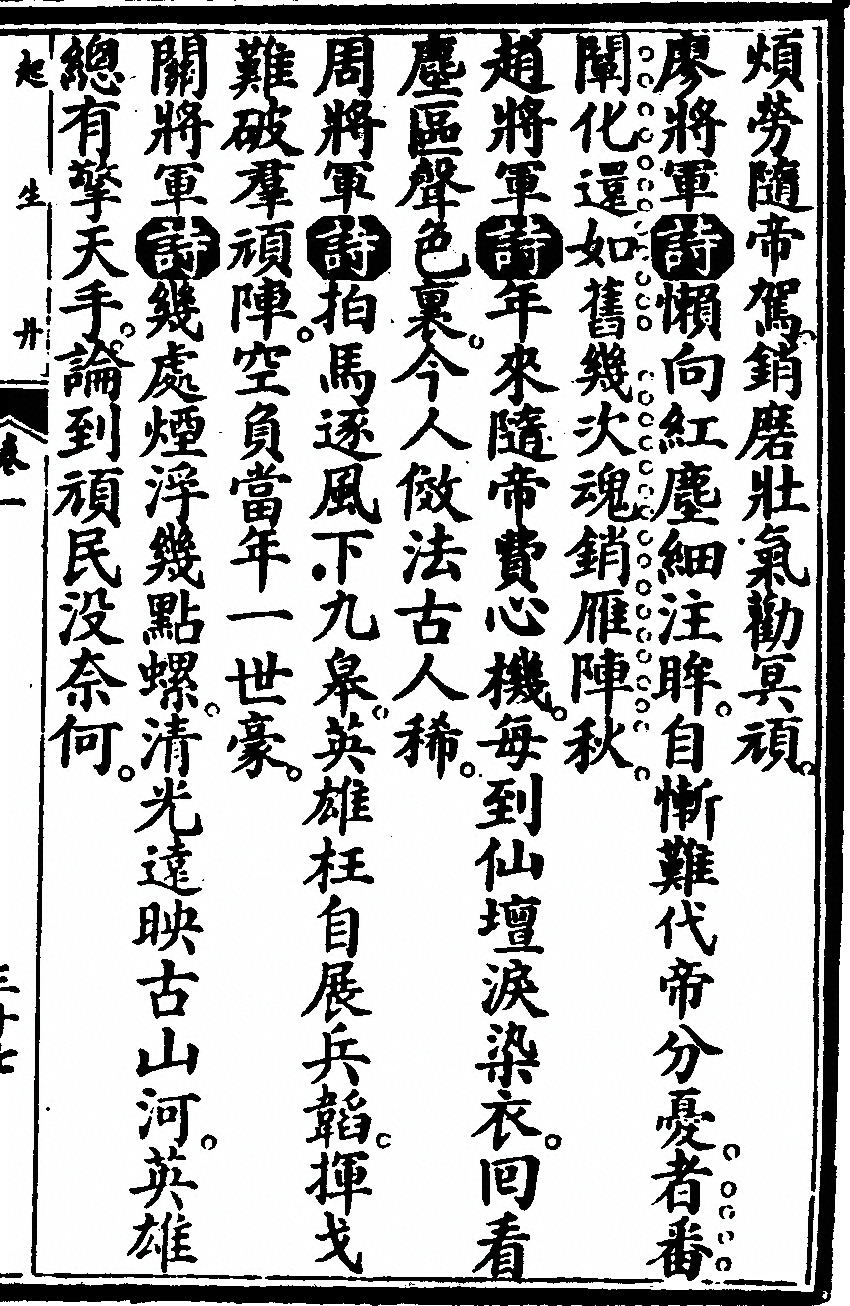 煩勞隨帝駕銷磨壯氣勸冥頑
廖將軍詩懶向紅塵細注眸自慚難代帝分憂者番
闡化還如舊幾次魂銷雁陣秋
趙將軍詩年來隨帝費心機每到仙壇淚染衣回看
塵區聲色裏今人倣法古人稀
周將軍詩拍馬逐風下九皋英雄枉自展兵韜揮戈
難破羣頑陣空負當年一世豪
關將軍詩幾處煙浮幾點螺清光遠映古山河英雄
總有擎天手論到頑民没奈何
起生丹
卷一
三十七